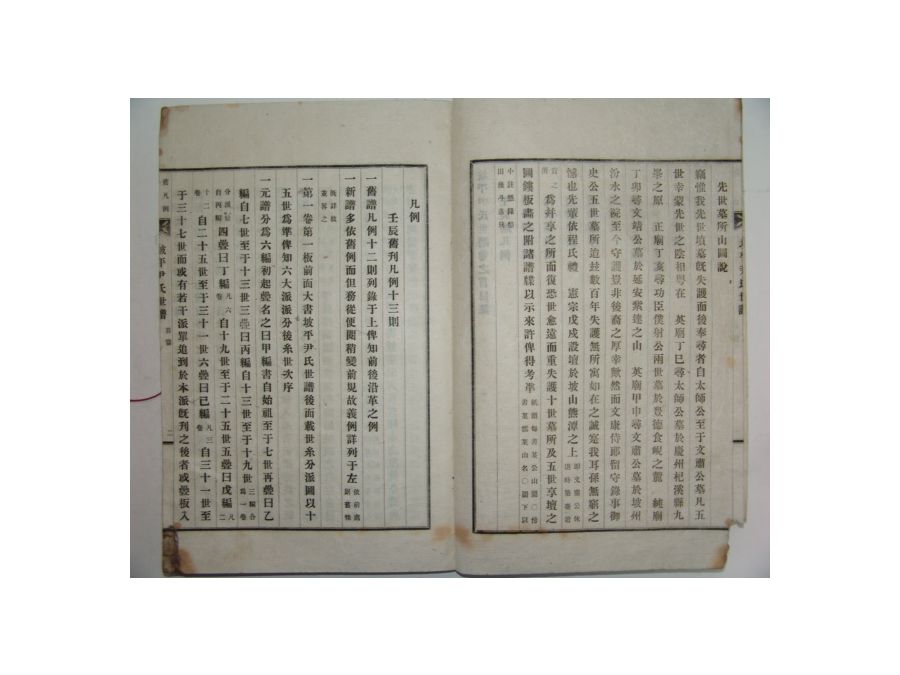 先世墓所山圖說
竊惟我先世墳墓旣失護而後奉尋者自太師公至于文肅公墓凡五
世幸蒙先世之陰相粤在 英廟丁巳尋太師公墓於慶州杞溪縣九
峯之原 正廟丁亥尋功臣僕射公兩世墓於豊德食峴之麓 純廟
丁卯尋文靖公墓於延安紫達之山 英廟甲申尋文肅公墓於坡州
汾水之院至今守護豈非後裔之厚幸歟然而文康侍郎留守錄事御
史公五世墓所迨玆數百年失護無所寓如在之誠寃我耳孫無窮之
憾也先輩依程氏禮 憲宗戊戌設壇於坡山熊潭之上
爲幷享之所而復恐世愈遠而重失護十世墓所及五世享壇之
圖鋟板畵之附諸譜牒以示來許俾得考準
凡例
壬辰舊刋凡例十三則
一舊譜凡例十二則列錄于上俾知前後沿革之例
一新譜多依舊例而但務從便閱稍變前規故義例詳列于左
一第一卷第一板前面大書坡平尹氏世譜後面載世系分派圖以十
五世爲準俾知六大派派分後系世次序
一元譜分爲六編初起疊名之曰甲編書自始祖至于七世再疊曰乙
編自七世至于十三世三疊曰丙編自十三世至于十九世
四疊曰丁編 自十九世至于二十五世五疊曰戊編
自二十五世至于三十一世六疊曰己編 自三十一世至
于三十七世而或有若干派單追到於本派旣刋之後者或疊板入
坡平尹氏世譜